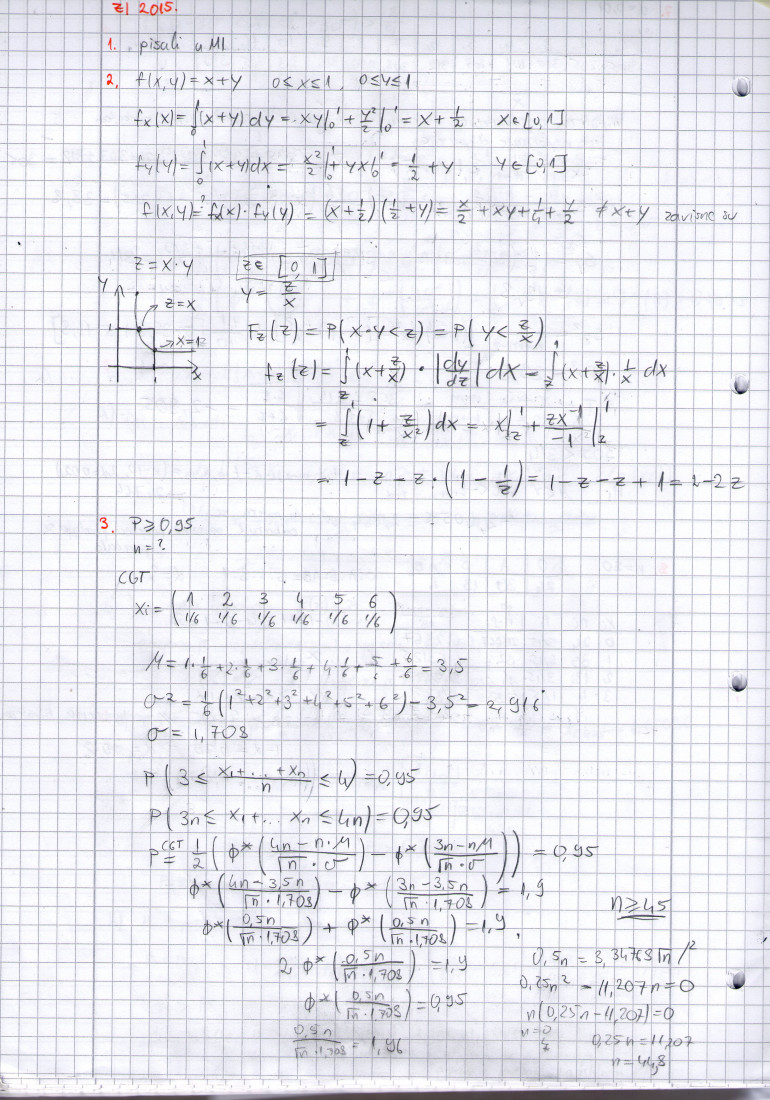 ZI 2015.
1. pisali u MI
2. f(x,y) = x+y 0≤x≤1, 0≤y≤1
fx(x) = ∫₀¹(x+y) dy = xy|₀¹ + y²/2|₀¹ = x + 1/2 x∈[0,1]
fy(y) = ∫₀¹(x+y)dx = x²/2|₀¹ + yx|₀¹ = 1/2 + y y∈[0,1]
f(x,y) =? fx(x)·fy(y) = (x+1/2)(1/2+y) = x/2 + xy + 1/4 + y/2 ≠ x+y zavisne su
z = x·y z∈[0,1]
y = z/x
y
z=x
1
x=1
x
1
Fz(z) = P(x·y<z) = P(y<z/x)
fz(z) = ∫_z^1 (x+z/x)·|dy/dz| dx = ∫_z^1 (x+z/x)·1/x dx
= ∫_z^1 (1+z/x²)dx = x|_z^1 + zx⁻¹/-1|_z^1
= 1-z-z·(1-1/z) = 1-z-z+1 = 2-2z
3. P≥0,95
n=?
CGT
xi = (1 2 3 4 5 6
1/6 1/6 1/6 1/6 1/6 1/6)
μ = 1·1/6+2·1/6+3·1/6+4·1/6+5/6+6/6 = 3,5
σ² = 1/6(1²+2²+3²+4²+5²+6²)-3,5² = 2,916
σ = 1,708
P(3 ≤ (x₁+...+xn)/n ≤ 4) = 0,95
P(3n ≤ x₁+... xn ≤ 4n) = 0,95
P CGT= 1/2(Φ*((4n-n·μ)/(√n·σ)) - Φ*((3n-nμ)/(√n·σ))) = 0,95
Φ*((4n-3,5n)/(√n·1,708)) - Φ*((3n-3,5n)/(√n·1,708)) = 1,9
Φ*(0,5n/(√n·1,708)) + Φ*(0,5n/(√n·1,708)) = 1,9
2Φ*(0,5n/(√n·1,708)) = 1,9
Φ*(0,5n/(√n·1,708)) = 0,95
0,5n/(√n·1,708) = 1,96
n≥45
0,5n = 3,34768√n /²
0,25n² - 11,207n = 0
n(0,25n-11,207) = 0
n=0
0,25n = 11,207
n = 44,8